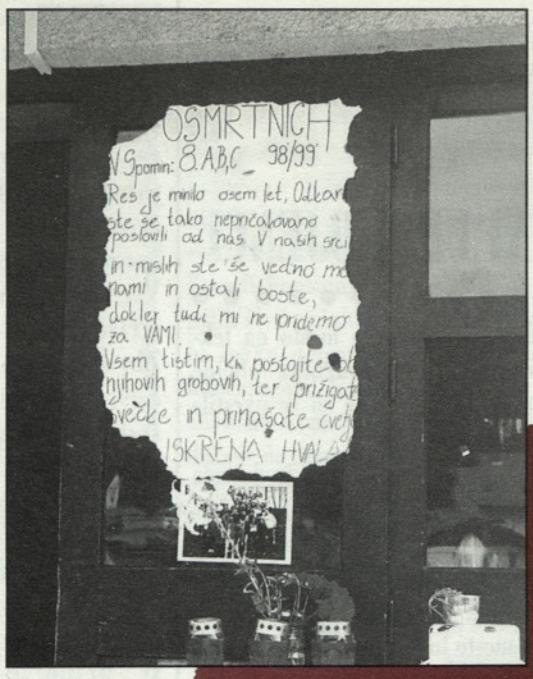 OSMRTNICH
V Spomin: 8. A,B,C 98/99
Res je minilo osem let, Odkar
ste se tako nepričakovano
poslovili od nas. V naših srci
in mislih ste še vedno me
nami in ostali boste,
dokler tudi mi ne pridemo
za VAMI.
Vsem tistim, ki postojite ob
njihovih grobovih, ter prižigat
svečke in prinašate cvetj
ISKRENA HVALA